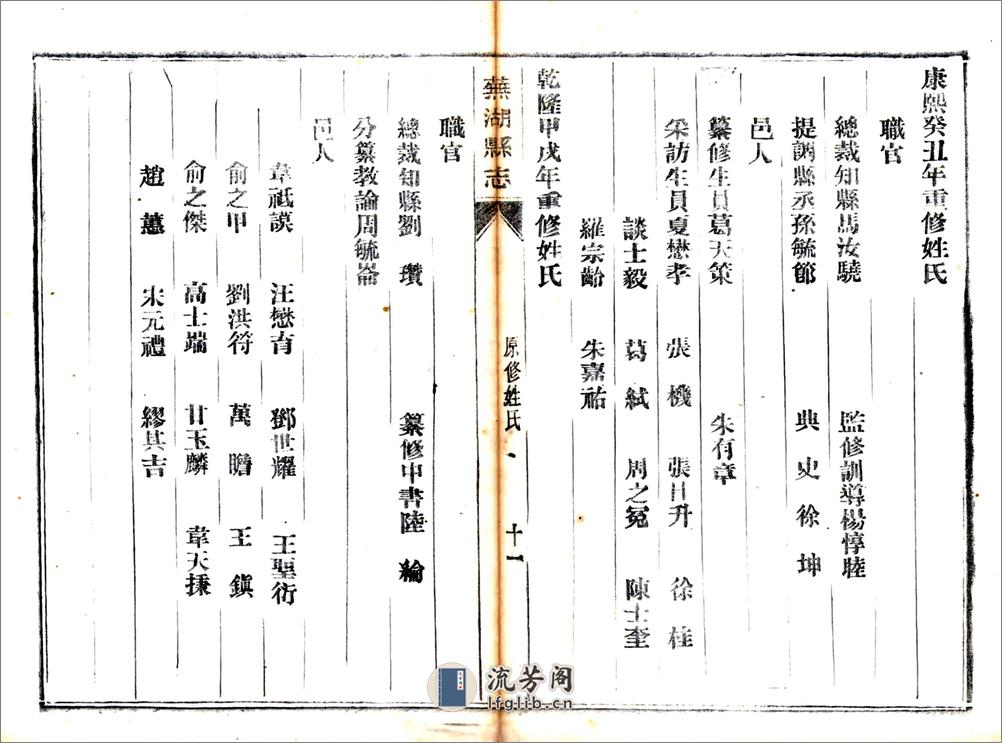 康熙癸丑年重修姓氏
職官
總裁知縣馬汝驍 監修訓導楊惇睦
提調縣丞孫毓節 典史徐坤
邑人
纂修生員葛天策 朱有章
采訪生員夏懋孝 張機 張日升 徐桂
談士毅 葛軾 周之冕 陳士奎
羅宗齡 朱嘉祐
乾隆甲戌年重修姓氏
蕪湖縣志 原修姓氏 十一
職官
總裁知縣劉瓚 纂修中書陸綸
分纂教諭周毓崙
邑人
韋祗謨 汪懋育 鄧世耀 王聖衍
俞之甲 劉洪符 萬瞻 王鎮
俞之傑 高士端 甘玉麟 韋天捶
趙蕙 宋元禮 繆其吉
流芳阁
lfglib.cn